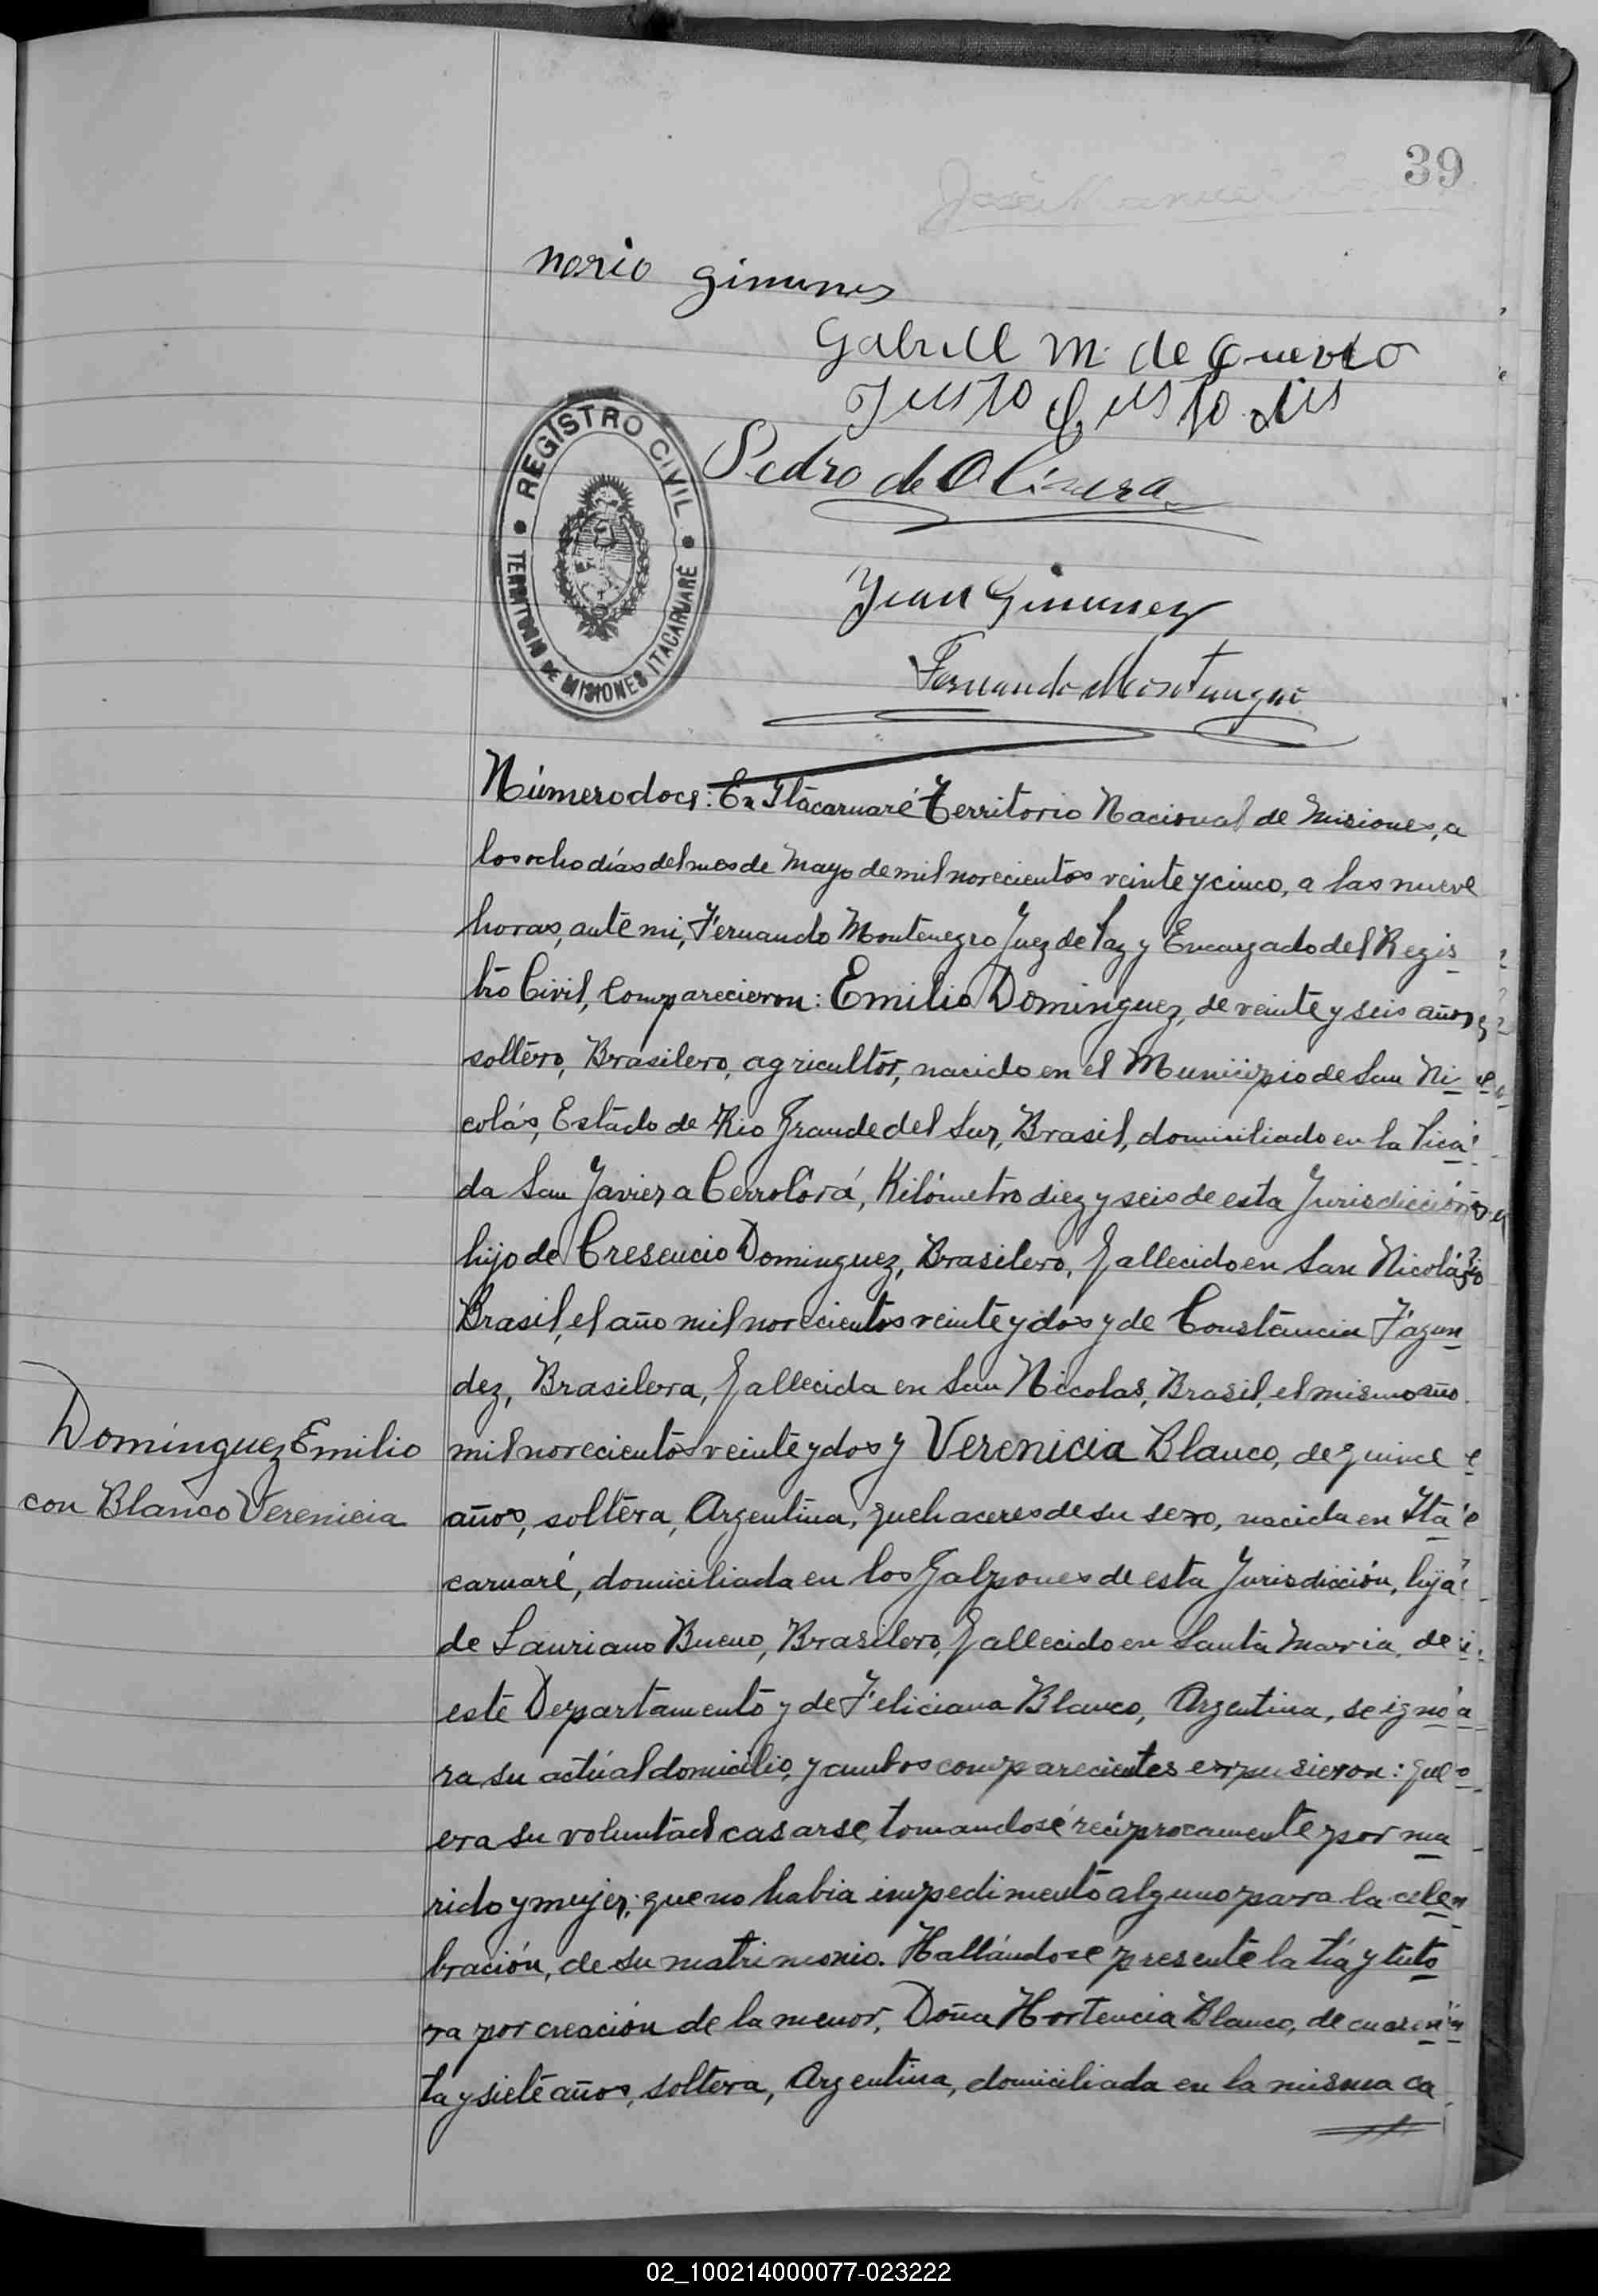 39
norio Gimenes
Gabriel M. de
Justo
Pedro de Olivera
Juan Gimenez
Fernando Montenegro
REGISTRO CIVIL
TERRITORIO DE MISIONES ITACARUARÉ
Número doce: En Itacaruaré Territorio Nacional de Misiones, a
los ocho días del mes de Mayo de mil novecientos veinte y cinco, a las nueve
horas, ante mi, Fernando Montenegro Juez de Paz y Encargado del Regis
tro Civil, Comparecieron: Emilio Dominguez, de veinte y seis años,
soltero, Brasilero, agricultor, nacido en el Municipio de San Ni
colás, Estado de Rio Grande del Sur, Brasil, domiciliado en la Pica
da San Javier a Cerro Corá, Kilómetro diez y seis de esta Jurisdicción
hijo de Cresencio Dominguez, Brasilero, fallecido en San Nicolás
Brasil, el año mil novecientos veinte y dos y de Constancia Fagun
dez, Brasilera, fallecida en San Nicolas, Brasil, el mismo año
Dominguez Emilio
con Blanco Verenicia
mil novecientos veinte y dos y Verenicia Blanco, de quince
años, soltera, Argentina, quehaceres de su sexo, nacida en Ita
caruaré, domiciliada en los Galpones de esta Jurisdicción, hija
de Lauriano Bueno, Brasilero, fallecido en Santa Maria, de
este Departamento y de Feliciana Blanco, Argentina, se igno
ra su actúal domicilio, y ambos comparecientes expusieron: que
era su voluntad casarse, tomandosé recíprocamente por ma
rido y mujer; que no habia impedimento alguno para la cele
bración, de su matrimonio. Hallándose presente la tía y tuto
ra por creación de la menor, Doña Hortencia Blanco, de cuaren
ta y siete años, soltera, Argentina, domiciliada en la misma ca
02_100214000077-023222